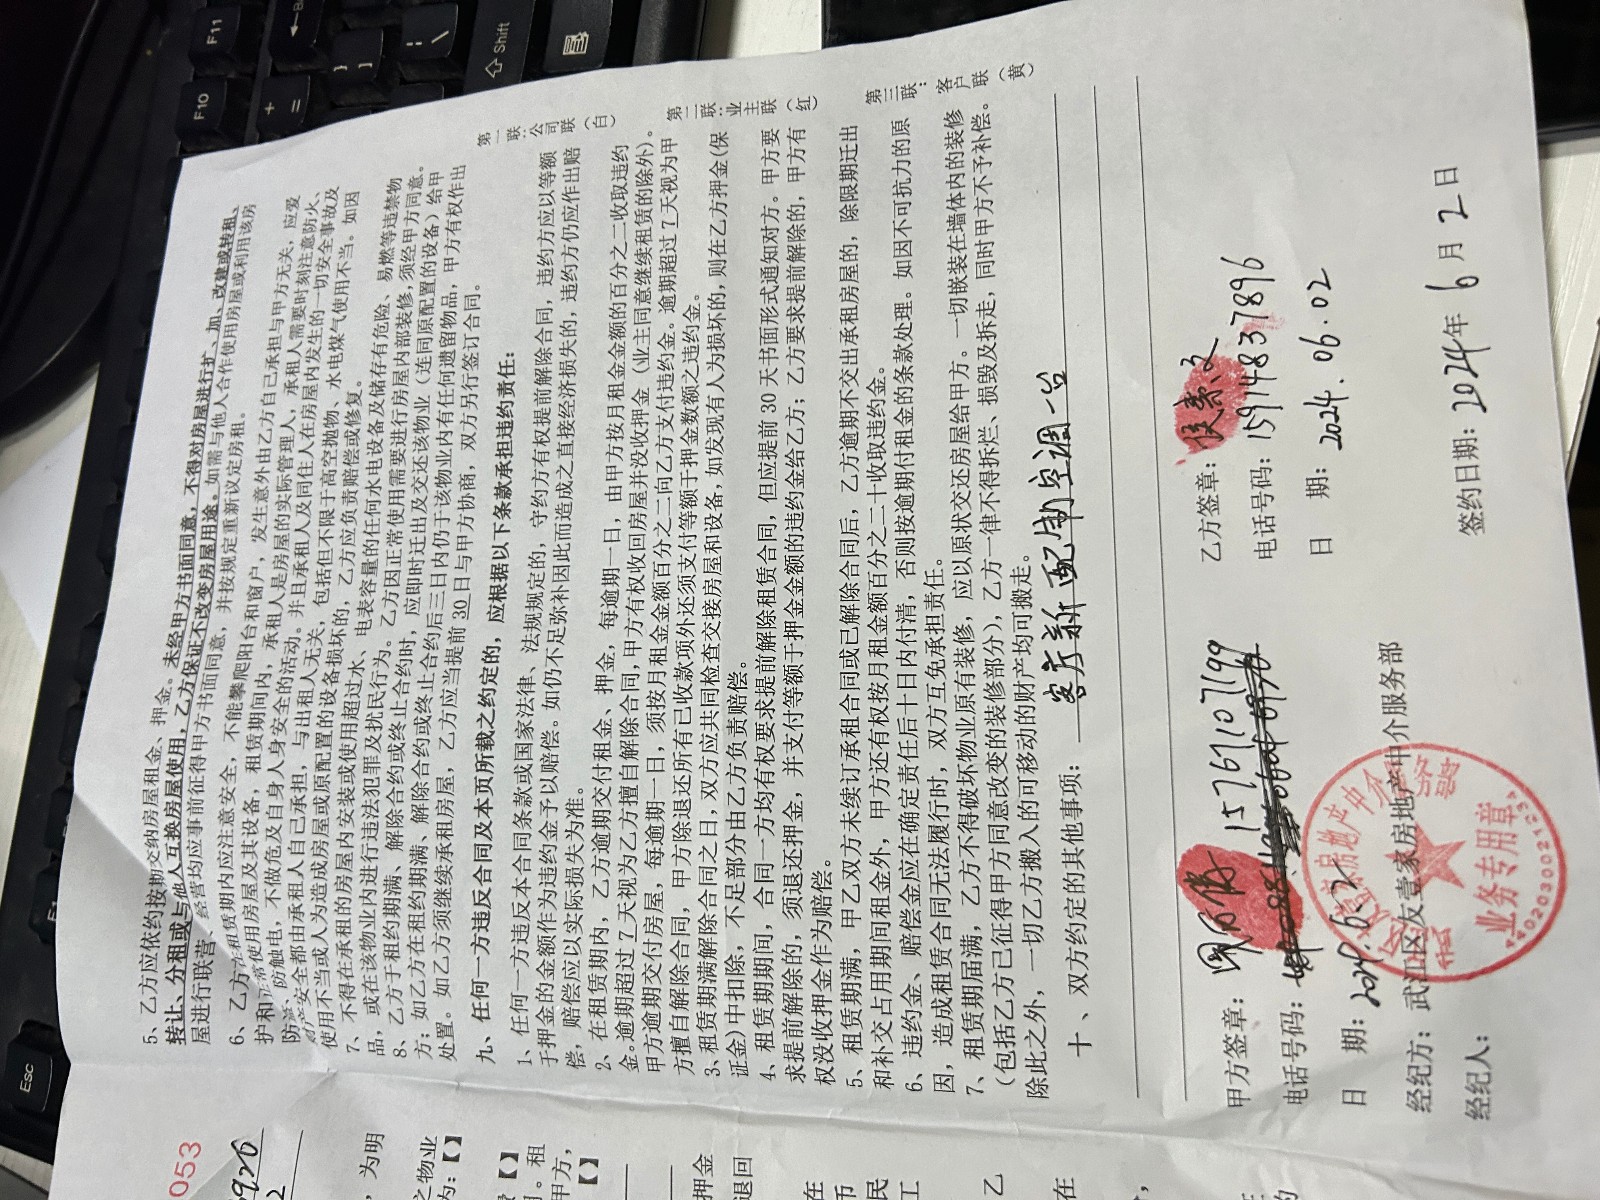 5、乙方应依约按期交纳房屋租金、押金。未经甲方书面同意，不得对房屋进行扩、加、改建或转租、
转让、分租或与他人互换房屋使用，乙方保证不改变房屋用途。如需与他人合作使用房屋或利用该房
屋进行联营、经营均应事前征得甲方书面同意，并按规定重新议定房租。
6、乙方在租赁期内应注意安全，不能攀爬阳台和窗户，发生意外由乙方自己承担与甲方无关，应爱
护和正常使用房屋及其设备，租赁期间内，承租人是房屋的实际管理人，承租人需要时刻注意防火、
防盗、防触电，不做危及自身人身安全的活动。并且承租人及同住人在房屋内发生的一切安全事故及
财产安全都由承租人自己承担，与出租人无关，包括但不限于高空抛物、水电煤气使用不当。如因
使用不当或人为造成房屋或原配置的设备损坏的，乙方应负责赔偿或修复。
7、不得在承租的房屋内安装或使用超过水、电表容量的任何水电设备及储存有危险、易燃等违禁物
品，或在该物业内进行违法犯罪及扰民行为。乙方因正常使用需要进行房屋内部装修，须经甲方同意。
8、乙方于租约期满、解除合约或终止合约时，应即时迁出及交还该物业（连同原配置的设备）给甲
方；如乙方在租约期满、解除合约或终止合约后三日内仍于该物业内有任何遗留物品，甲方有权作出
处置。如乙方须继续承租房屋，乙方应当提前 30 日与甲方协商，双方另行签订合同。
九、任何一方违反合同及本页所载之约定的，应根据以下条款承担违约责任：
1、任何一方违反本合同条款或国家法律、法规规定的，守约方有权提前解除合同，违约方应以等额
于押金的金额作为违约金予以赔偿。如仍不足弥补因此而造成之直接经济损失的，违约方仍应作出赔
偿，赔偿应以实际损失为准。
2、在租赁期内，乙方逾期交付租金、押金，每逾期一日，由甲方按月租金金额的百分之二收取违约
金。逾期超过 7 天视为乙方擅自解除合同，甲方有权收回房屋并没收押金（业主同意继续租赁的除外）。
甲方逾期交付房屋，每逾期一日，须按月租金金额百分之二向乙方支付违约金。逾期超过 7 天视为甲
方擅自解除合同，甲方除退还所有已收款项外还须支付等额于押金数额之违约金。
3、租赁期满解除合同之日，双方应共同检查交接房屋和设备，如发现有人为损坏的，则在乙方押金(保
证金)中扣除，不足部分由乙方负责赔偿。
4、租赁期期间，合同一方均有权要求提前解除租赁合同，但应提前 30 天书面形式通知对方。甲方要
求提前解除的，须退还押金，并支付等额于押金金额的违约金给乙方；乙方要求提前解除的，甲方有
权没收押金作为赔偿。
5、租赁期满，甲乙双方未续订承租合同或已解除合同后，乙方逾期不交出承租房屋的，除限期迁出
和补交占用期间租金外，甲方还有权按月租金额百分之二十收取违约金。
6、违约金、赔偿金应在确定责任后十日内付清，否则按逾期付租金的条款处理。如因不可抗力的原
因，造成租赁合同无法履行时，双方互免承担责任。
7、租赁期届满，乙方不得破坏物业原有装修，应以原状交还房屋给甲方。一切嵌装在墙体内的装修
（包括乙方已征得甲方同意改变的装修部分），乙方一律不得拆烂、损毁及拆走，同时甲方不予补偿。
除此之外，一切乙方搬入的可移动的财产均可搬走。
十、双方约定的其他事项：客厅新配制空调一台
第一联：公司联（白）
第二联：业主联（红）
第三联：客户联（黄）
甲方签章：
电话号码：15767107199
日 期：2024.6.2
乙方签章：
电话号码：15914837896
日 期：2024.06.02
经纪方：武江区友壹家房地产中介服务部
经纪人：
签约日期：2024年 6 月 2 日
业务专用章
4402030021234
053
，为明
之物业
为：【】
。租
甲方，
【】
押金
退回
在
币
民
工
乙
在
Esc
F10
F11
Shift